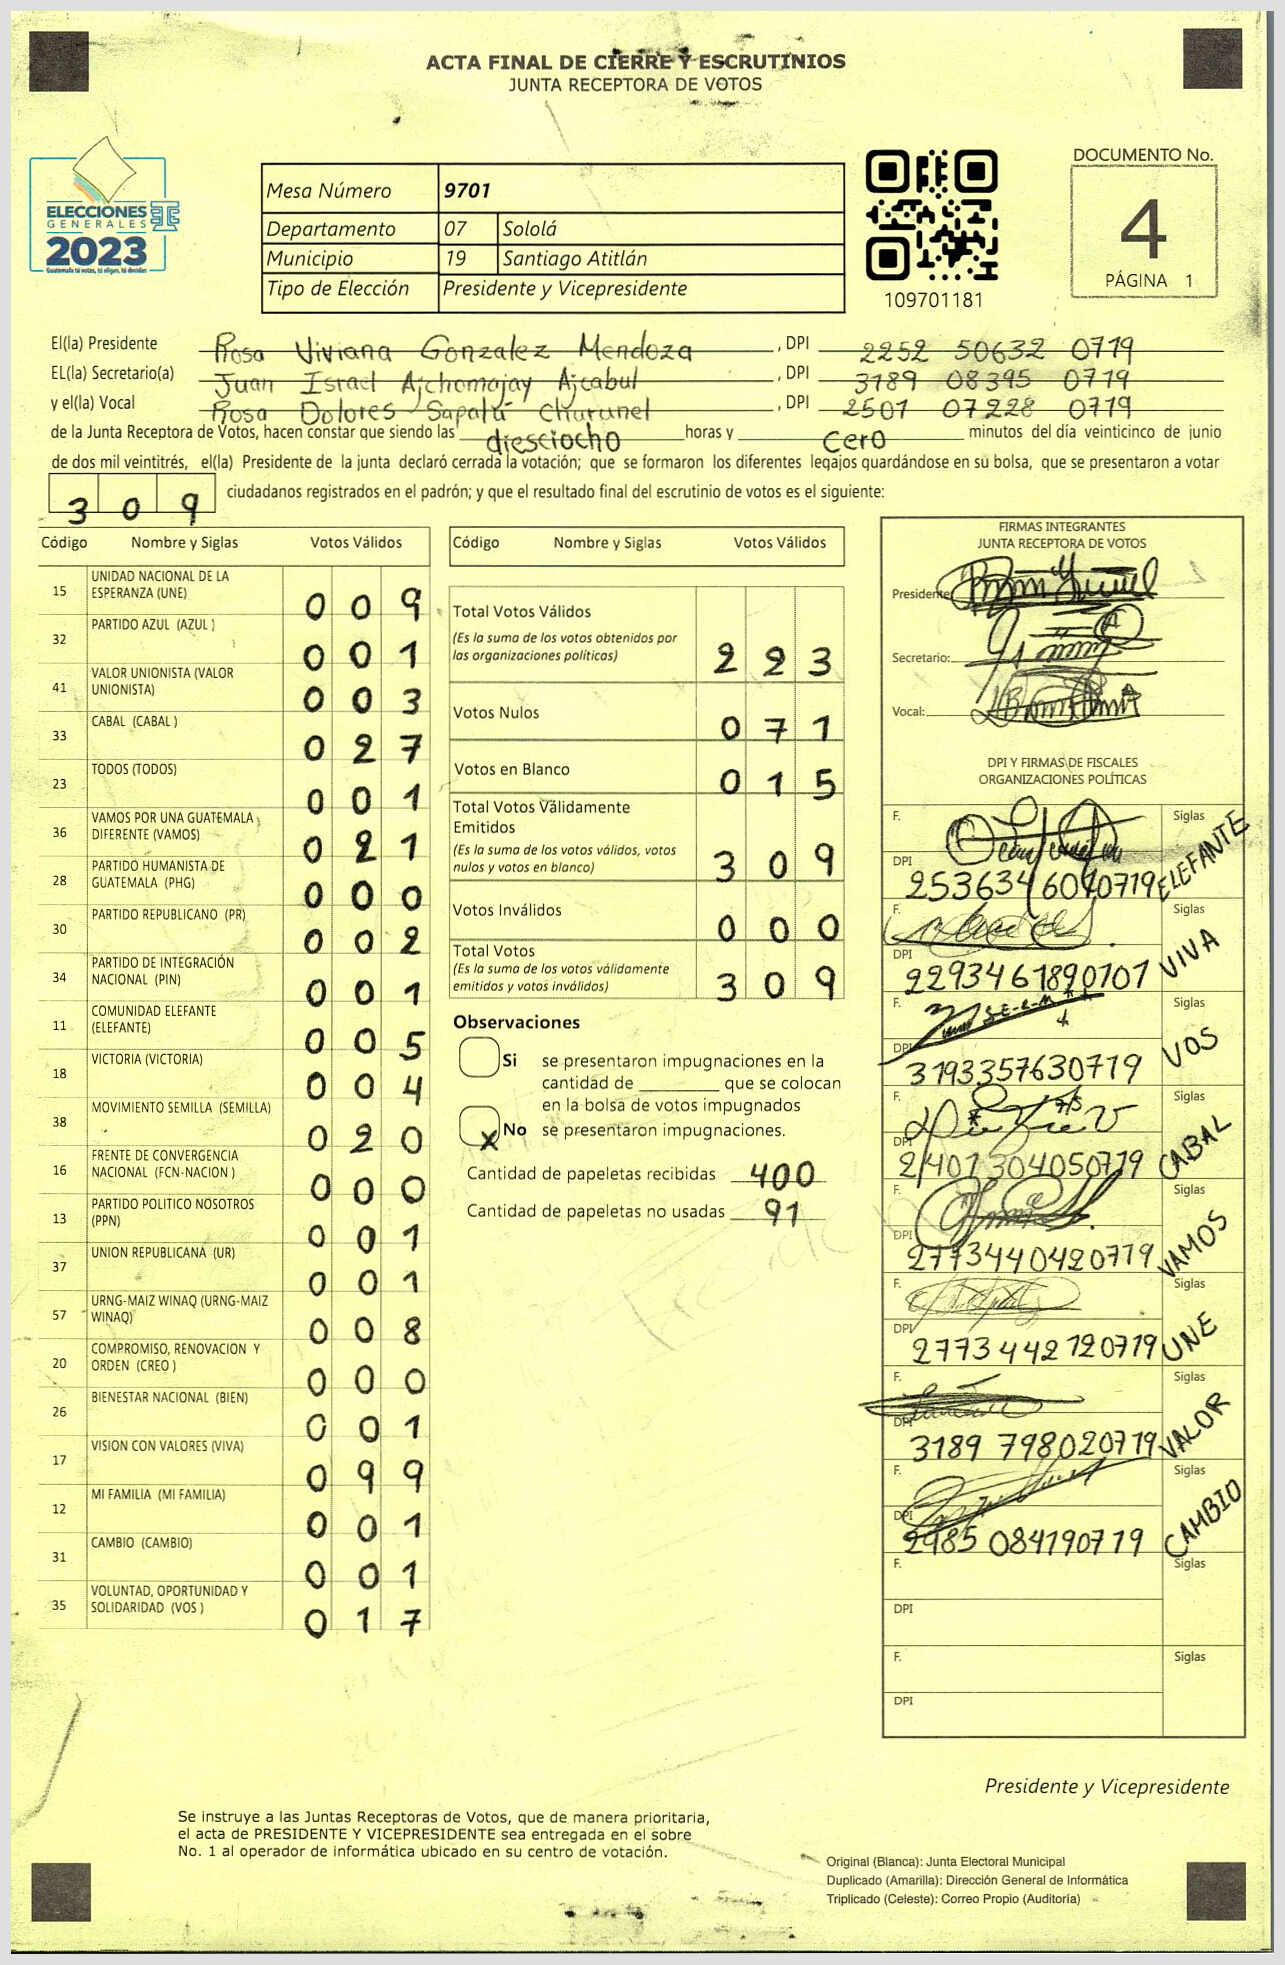 ACTA FINAL DE CIERRE Y ESCRUTINIOS
JUNTA RECEPTORA DE VOTOS
ELECCIONES
GENERALES
2023
Guatemala tú votas, tú eliges, tú decides
Mesa Número 9701
Departamento 07 Sololá
Municipio 19 Santiago Atitlán
Tipo de Elección Presidente y Vicepresidente
109701181
DOCUMENTO No.
4
PÁGINA 1
El(la) Presidente Rosa Viviana Gonzalez Mendoza , DPI 2252 50632 0719
EL(la) Secretario(a) Juan Israel Ajchomajay Ajcabul , DPI 3189 08395 0719
y el(la) Vocal Rosa Dolores Sapalú , DPI 2501 07228 0719
de la Junta Receptora de Votos, hacen constar que siendo las diesciocho horas y cero minutos del día veinticinco de junio
de dos mil veintitrés, el(la) Presidente de la junta declaró cerrada la votación; que se formaron los diferentes legajos guardándose en su bolsa, que se presentaron a votar
309 ciudadanos registrados en el padrón; y que el resultado final del escrutinio de votos es el siguiente:
Código Nombre y Siglas Votos Válidos
15 UNIDAD NACIONAL DE LA ESPERANZA (UNE) 009
32 PARTIDO AZUL (AZUL ) 001
41 VALOR UNIONISTA (VALOR UNIONISTA) 003
33 CABAL (CABAL ) 027
23 TODOS (TODOS) 001
36 VAMOS POR UNA GUATEMALA DIFERENTE (VAMOS) 021
28 PARTIDO HUMANISTA DE GUATEMALA (PHG) 000
30 PARTIDO REPUBLICANO (PR) 002
34 PARTIDO DE INTEGRACIÓN NACIONAL (PIN) 001
11 COMUNIDAD ELEFANTE (ELEFANTE) 005
18 VICTORIA (VICTORIA) 004
38 MOVIMIENTO SEMILLA (SEMILLA) 020
16 FRENTE DE CONVERGENCIA NACIONAL (FCN-NACION ) 000
13 PARTIDO POLITICO NOSOTROS (PPN) 001
37 UNION REPUBLICANA (UR) 001
57 URNG-MAIZ WINAQ (URNG-MAIZ WINAQ) 008
20 COMPROMISO, RENOVACION Y ORDEN (CREO ) 000
26 BIENESTAR NACIONAL (BIEN) 001
17 VISION CON VALORES (VIVA) 099
12 MI FAMILIA (MI FAMILIA) 001
31 CAMBIO (CAMBIO) 001
35 VOLUNTAD, OPORTUNIDAD Y SOLIDARIDAD (VOS ) 017
Código Nombre y Siglas Votos Válidos
Total Votos Válidos
(Es la suma de los votos obtenidos por
las organizaciones políticas) 223
Votos Nulos 071
Votos en Blanco 015
Total Votos Válidamente
Emitidos
(Es la suma de los votos válidos, votos
nulos y votos en blanco) 309
Votos Inválidos 000
Total Votos
(Es la suma de los votos válidamente
emitidos y votos inválidos) 309
Observaciones
Si se presentaron impugnaciones en la
cantidad de ________ que se colocan
en la bolsa de votos impugnados
X No se presentaron impugnaciones.
Cantidad de papeletas recibidas 400
Cantidad de papeletas no usadas 91
FIRMAS INTEGRANTES
JUNTA RECEPTORA DE VOTOS
Presidente:
Secretario:
Vocal:
DPI Y FIRMAS DE FISCALES
ORGANIZACIONES POLÍTICAS
F. Siglas ELEFANTE
DPI 2536346040719
F. Siglas VIVA
DPI 2293461890107
F. Siglas VOS
DPI 3193357630719
F. Siglas CABAL
DPI 2401304050719
F. Siglas VAMOS
DPI 2773440420719
F. Siglas UNE
DPI 2773442120719
F. Siglas VALOR
DPI 3189 798020719
F. Siglas CAMBIO
DPI 2985 084190719
F. Siglas
DPI
F. Siglas
DPI
Presidente y Vicepresidente
Se instruye a las Juntas Receptoras de Votos, que de manera prioritaria,
el acta de PRESIDENTE Y VICEPRESIDENTE sea entregada en el sobre
No. 1 al operador de informática ubicado en su centro de votación.
Original (Blanca): Junta Electoral Municipal
Duplicado (Amarilla): Dirección General de Informática
Triplicado (Celeste): Correo Propio (Auditoría)